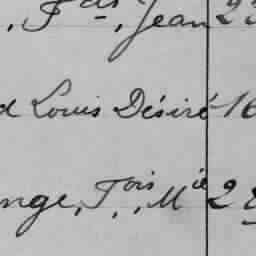 , Fds, Jean 23
d Louis Désiré 16
nge, Fois, Mie 28